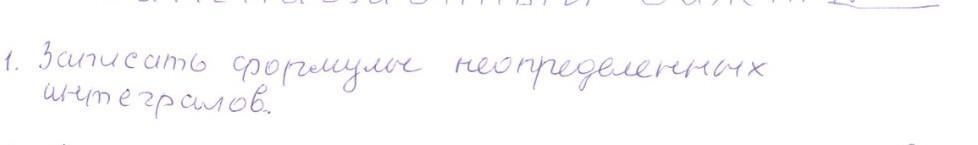 1. Записать формулы неопределенных
интегралов.